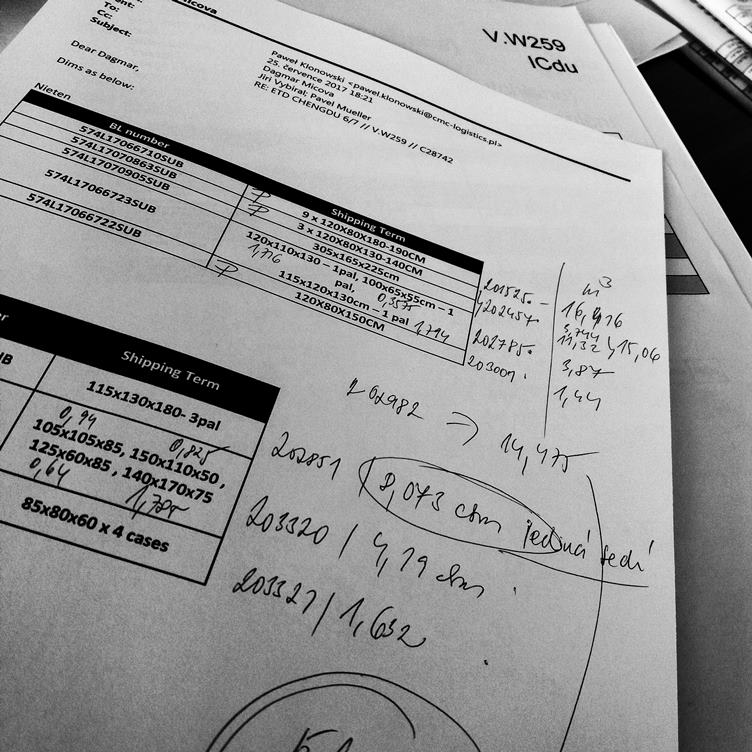 V.W259
ICdu
micova
To:
Cc:
Subject:
Pawel Klonowski <pawel.klonowski@cmc-logistics.pl>
25. července 2017 18:21
Dagmar Micova
Jiri Vybiral; Pavel Mueller
RE: ETD CHENGDU 6/7 // V.W259 // C28742
Dear Dagmar,
Dims as below:
Nieten
BL number
Shipping Term
574L17066710SUB
9 x 120X80X180-190CM
574L17070863SUB
3 x 120X80X130-140CM
574L17070905SUB
305x165x225cm
574L17066723SUB
120x110x130 – 1pal, 100x65x55cm – 1
pal,
1,716
0,3575
115x120x130cm – 1 pal
1,794
574L17066722SUB
120X80X150CM
m3
201525. –
202457.
202785.
203001.
3,744
11,32
15,06
3,87
1,44
202982 → 14,475
Shipping Term
115x130x180- 3pal
0,94
0,825
105x105x85, 150x110x50,
125x60x85, 140x170x75
0,64
1,785
85x80x60 x 4 cases
202851 / 8,073 cbm jediná sedí
203320 / 4,19 cbm
203327 / 1,632